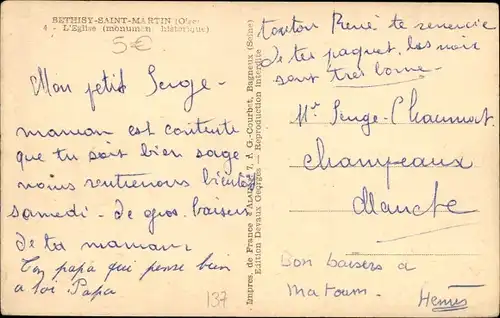 BETHISY-SAINT-MARTIN (Oise)
4 - L'Eglise (monument historique)
5€
Mon petit Serge -
maman est contente
que tu soit bien sage
nous reviendrons bientôt
samedi - de gros baisers
de ta maman,
Ton papa qui pense bien
a toi Papa
137
Impres. de France d'A. G.-Courbet, Bagneux (Seine)
Edition Devaux Georges — Reproduction Interdite
tonton René te remercie
de ton paquet. les noix
sont très bonne -
Mr Serge Chaumont
Champeaux
Manche
Bon baisers a
Matoum.